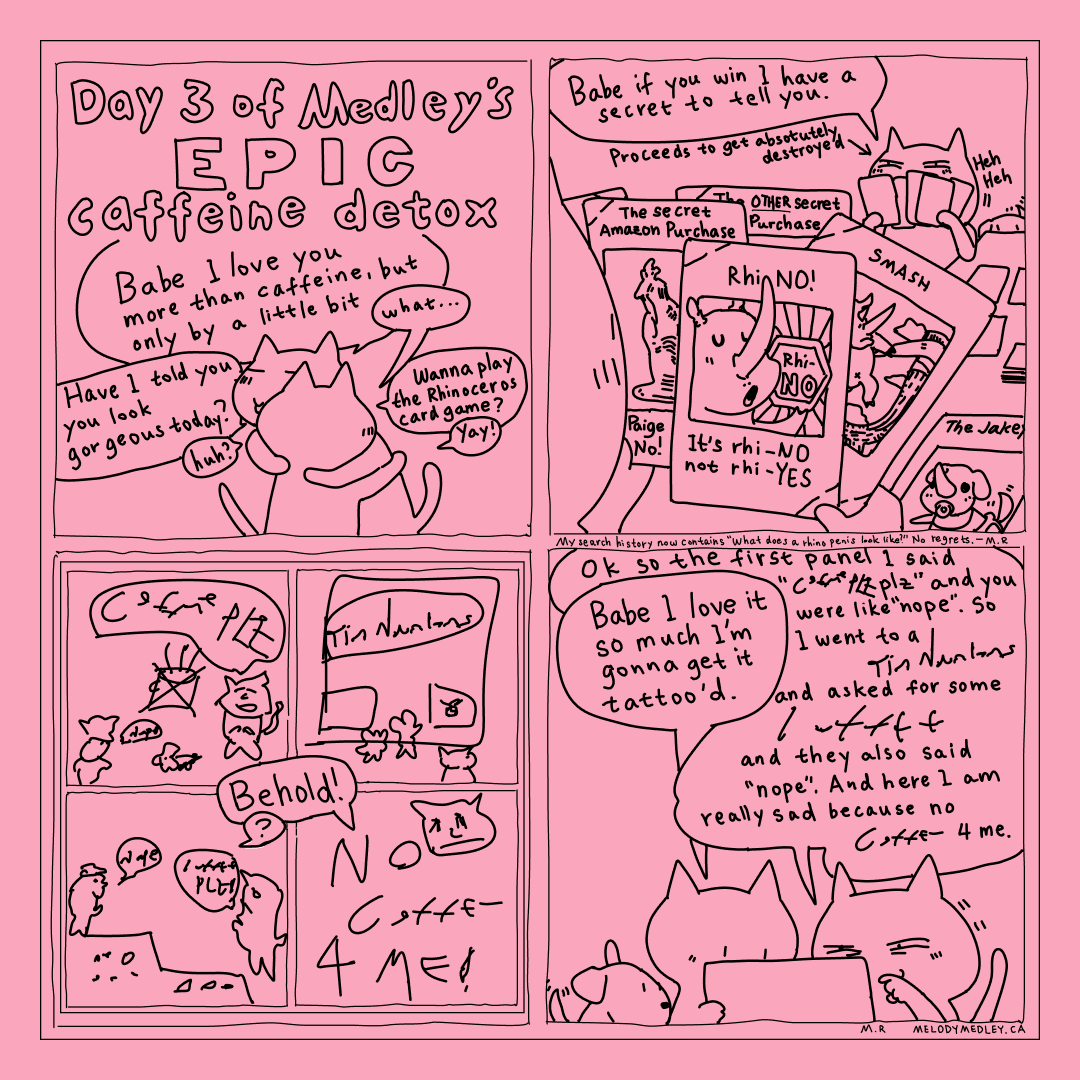 Day 3 of Medley's
EPIC
caffeine detox
Babe I love you
more than caffeine, but
only by a little bit
what...
Have I told you
you look
gorgeous today?
huh?
Wanna play
the Rhinoceros
card game?
Yay!
Babe if you win I have a
secret to tell you.
Proceeds to get absolutely
destroyed
Heh
Heh
The secret
Amazon Purchase
The OTHER secret
Purchase
SMASH
Rhi NO!
Rhi-
NO
It's rhi-NO
not rhi-YES
Paige
No!
The Jakey
My search history now contains "What does a rhino penis look like?" No regrets. - M.R
Plz
Nope
Tim Nurtons
Behold!
?
Nope
PLZ!
NO
4 ME!
Ok so the first panel I said
plz" and you
were like "nope". So
I went to a
Tim Nurtons
and asked for some
and they also said
"nope". And here I am
really sad because no
4 me.
Babe I love it
so much I'm
gonna get it
tattoo'd.
M.R MELODYMEDLEY.CA